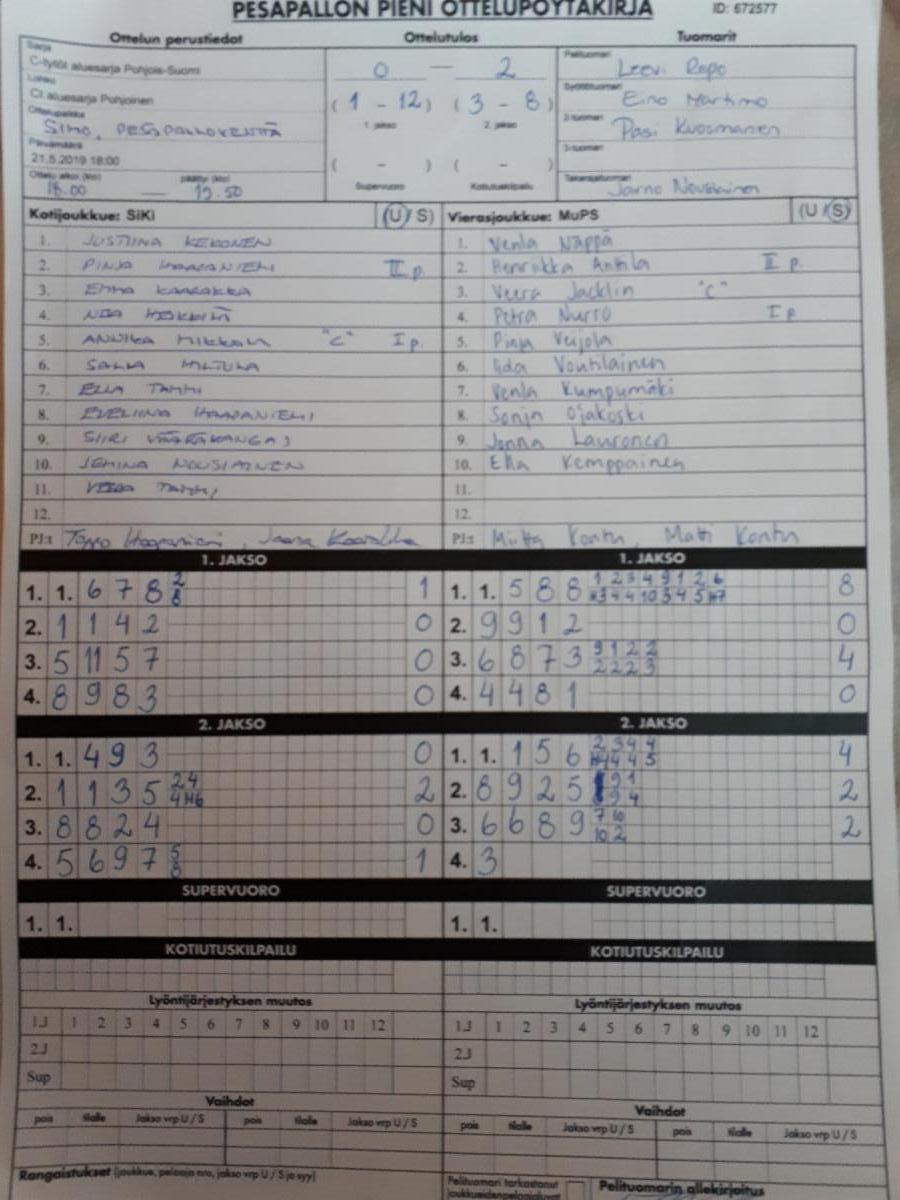 PESÄPALLON PIENI OTTELUPÖYTÄKIRJA ID: 672577
Ottelun perustiedot Ottelutulos Tuomarit
Sarja
C-tytöt aluesarja Pohjois-Suomi
Lohko
C1 aluesarja Pohjoinen
Ottelupaikka
SIMO, PESÄPALLOKENTTÄ
Päivämäärä
21.5.2019 18:00
Ottelu alkoi (klo) päättyi (klo)
18.00 — 19.50
0 — 2
(1 - 12) (3 - 8)
1. jakso 2. jakso
( - ) ( - )
Supervuoro Kotiutuskilpailu
Pelituomari
Leevi Repo
Syöttötuomari
Eino Martimo
2-tuomari
Pasi Kuosmanen
3-tuomari
Takarajatuomari
Jarno Nousiainen
Kotijoukkue: SiKi (U/S) Vierasjoukkue: MuPS (U/S)
1. JUSTIINA KEKONEN 1. Venla Näppä
2. PINJA HAAPANIEMI II p. 2. Henriikka Anttila II p.
3. EMMA KAARAKKA 3. Veera Jacklin "C"
4. 4. Petra Nurro I p
5. ANNIKA "C" I p. 5. Pinja Veijola
6. 6. Iida Voutilainen
7. ELLA TAMMI 7. Venla Kumpumäki
8. EVELIINA HAAPANIEMI 8. Sonja Ojakoski
9. SIIRI VÄÄRÄKANGAS 9. Jenna Lauronen
10. JEMINA NOUSIAINEN 10. Ella Kemppainen
11. TAMMI 11.
12. 12.
PJ:t Haapaniemi, PJ:t Kontu, Matti Kontu
1. JAKSO 1. JAKSO
1. 1. 6 7 8 2 8 1 1. 1. 5 8 8 1 2 3 4 9 1 2 6 8
2. 1 1 4 2 0 2. 9 9 1 2 0
3. 5 11 5 7 0 3. 6 8 7 3 9 1 2 2 2 2 2 3 4
4. 8 9 8 3 0 4. 4 4 8 1 0
2. JAKSO 2. JAKSO
1. 1. 4 9 3 0 1. 1. 1 5 6 2 3 4 4 4
2. 1 1 3 5 2 4 4 H6 2 2. 8 9 2 5 9 1 9 4 2
3. 8 8 2 4 0 3. 6 6 8 9 7 10 10 2 2
4. 5 6 9 7 5 8 1 4. 3
SUPERVUORO SUPERVUORO
1. 1. 1. 1.
KOTIUTUSKILPAILU KOTIUTUSKILPAILU
Lyöntijärjestyksen muutos Lyöntijärjestyksen muutos
1J 1 2 3 4 5 6 7 8 9 10 11 12 1J 1 2 3 4 5 6 7 8 9 10 11 12
2J 2J
Sup Sup
Vaihdot Vaihdot
pois tilalle Jakso vrp U / S pois tilalle Jakso vrp U / S pois tilalle Jakso vrp U / S pois tilalle Jakso vrp U / S
Rangaistukset (joukkue, pelaaja nro, jakso vrp U / S ja syy) Pelituomari tarkastanut Pelituomarin allekirjoitus